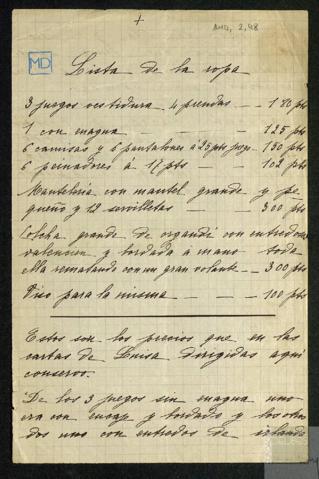 +
AMU, 2, 98
MD
Lista de la ropa
3 juegos vestidura 4 prendas — — 180 pts
1 con enagua — — — 125 pts
6 camisas y 6 pantalones á 25 pts juego. 150 pts
6 peinadores á 17 pts — — 102 pts
Mantelería con mantel grande y pe-
queño y 12 servilletas — — 300 pts
Colcha grande de organdí con entredoses
valencien y bordada á mano toda
ella rematando con un gran volante — 300 pts
Viso para la misma — — — 100 pts
Estos son los precios que en las
cartas de Luisa dirigidas aquí
conservo.
De los 3 juegos sin enagua uno
era con encaje y bordado y los otros
dos uno con entredos de irlanda